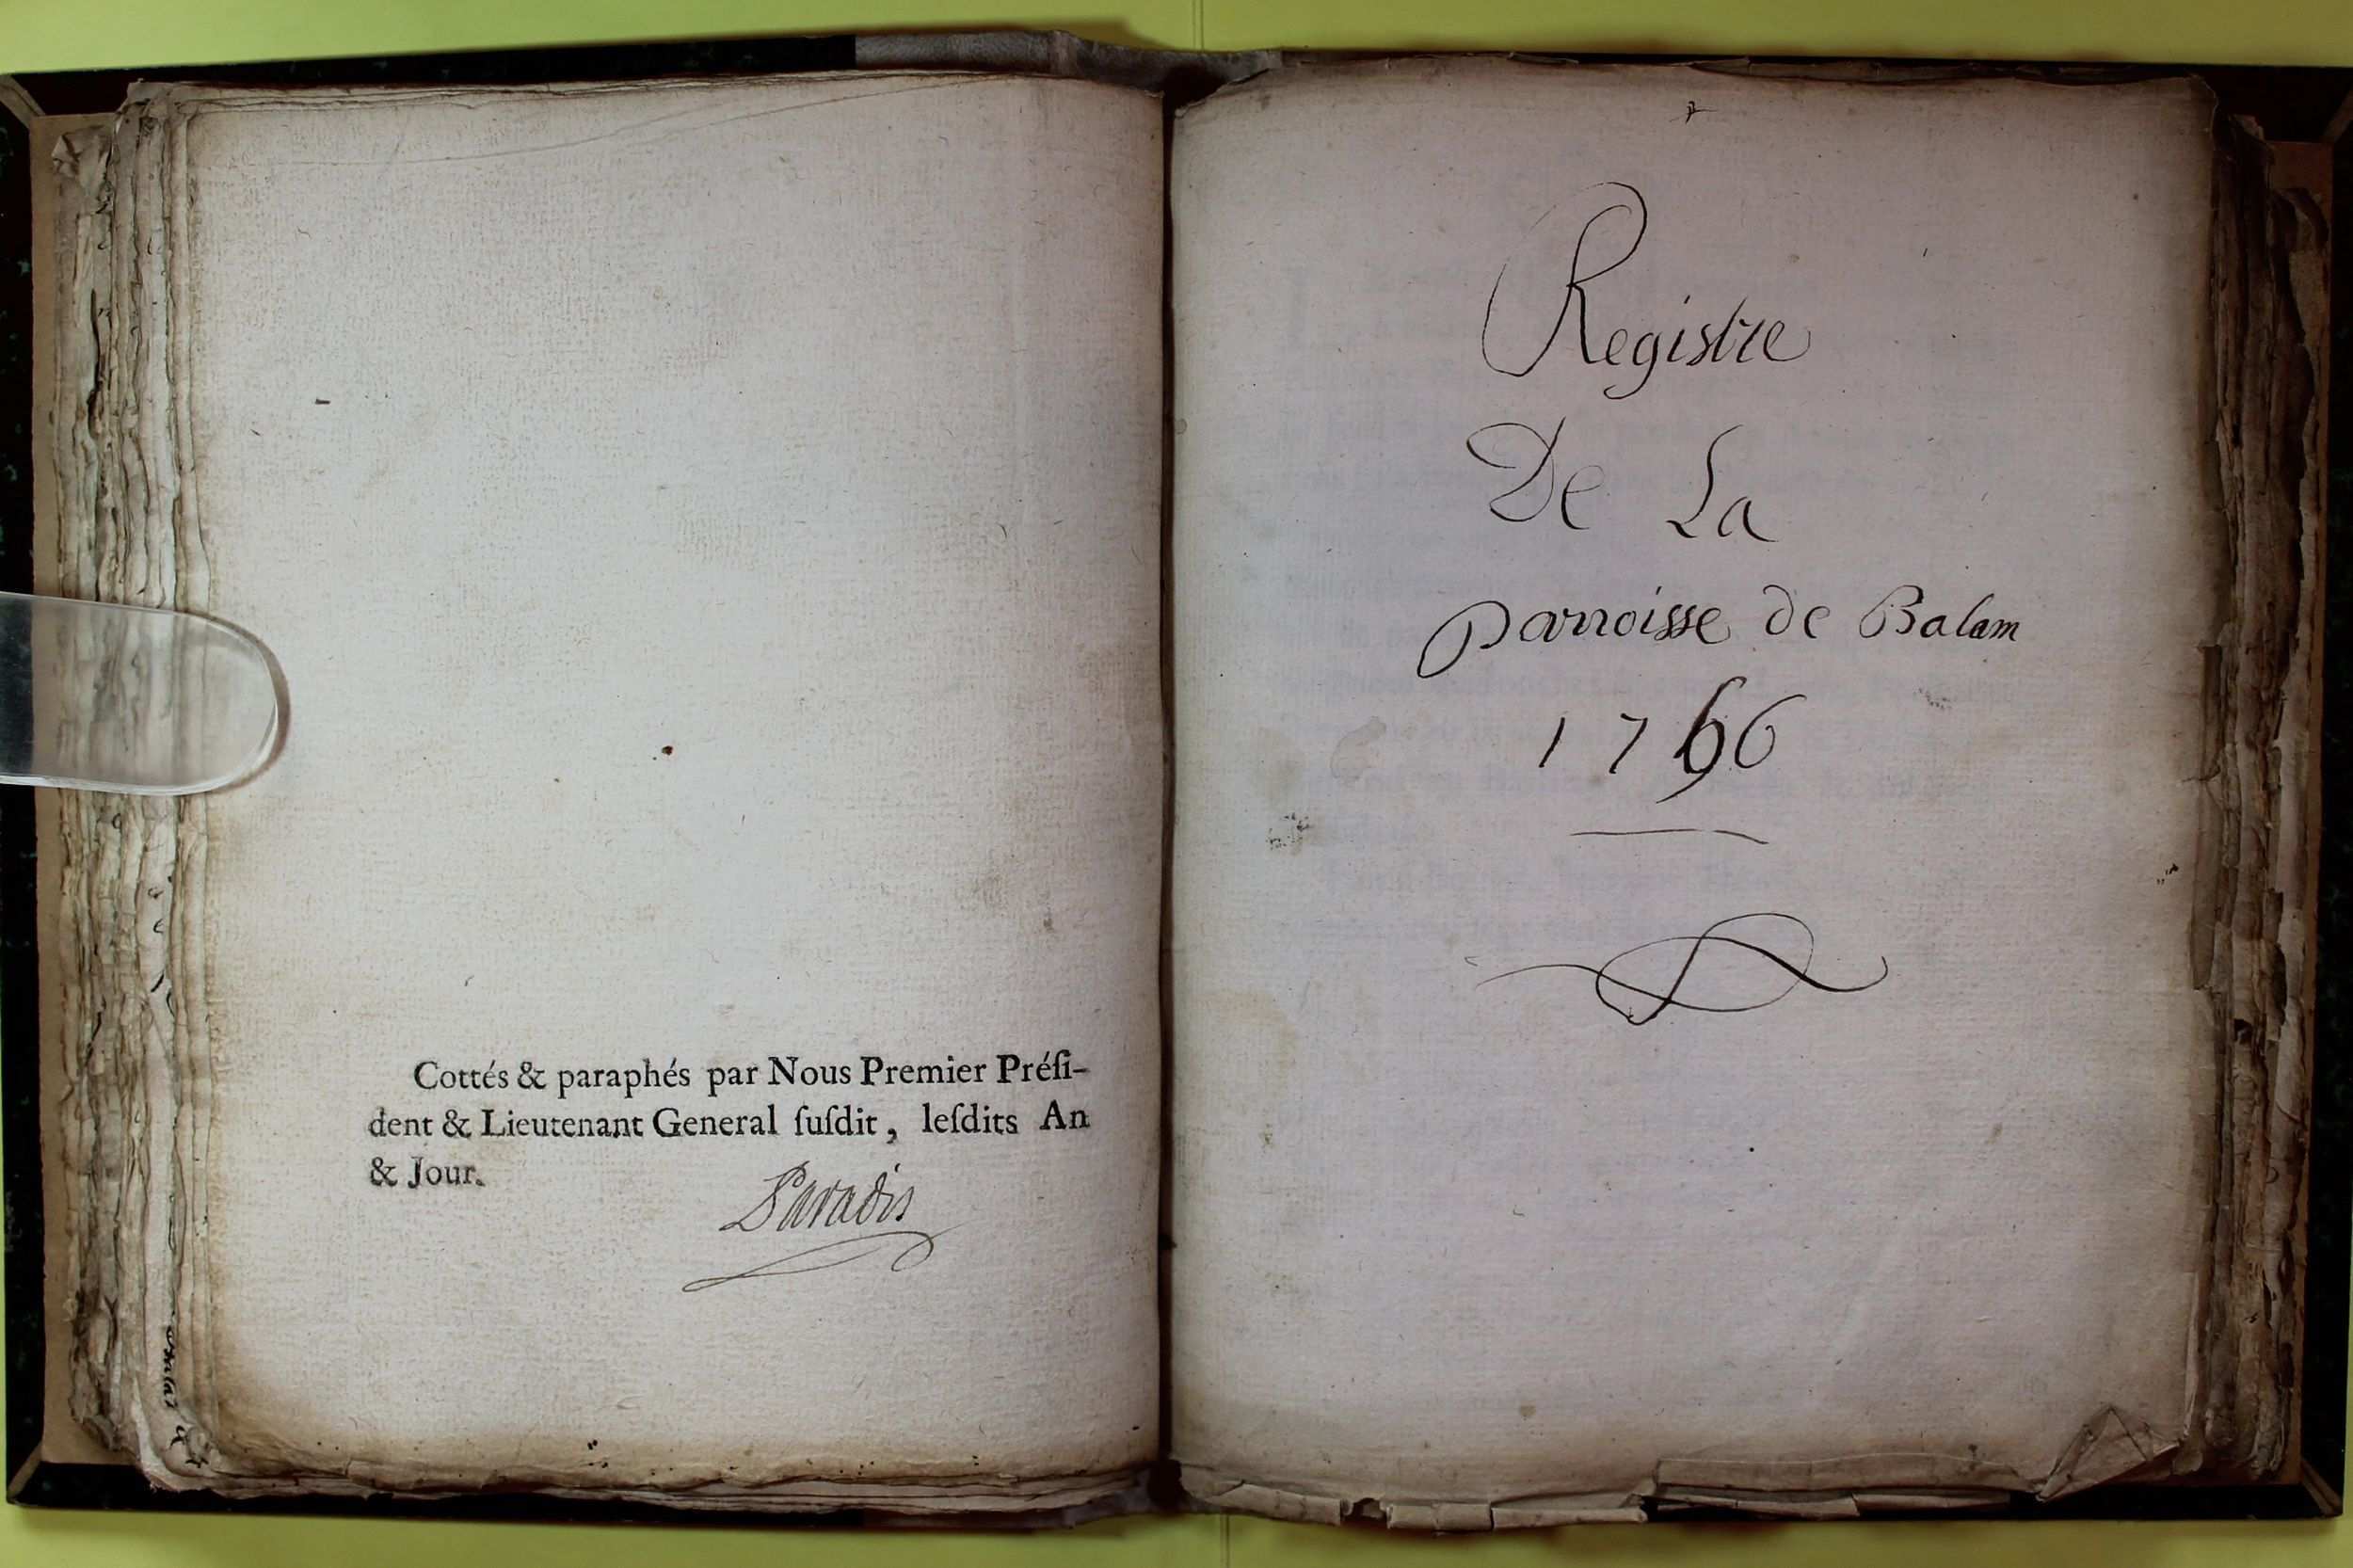 Cottés & paraphés par Nous Premier Préſi-
dent & Lieutenant General ſuſdit, leſdits An
& Jour.
Paradis
Registre
De La
parroisse de Balam
1766